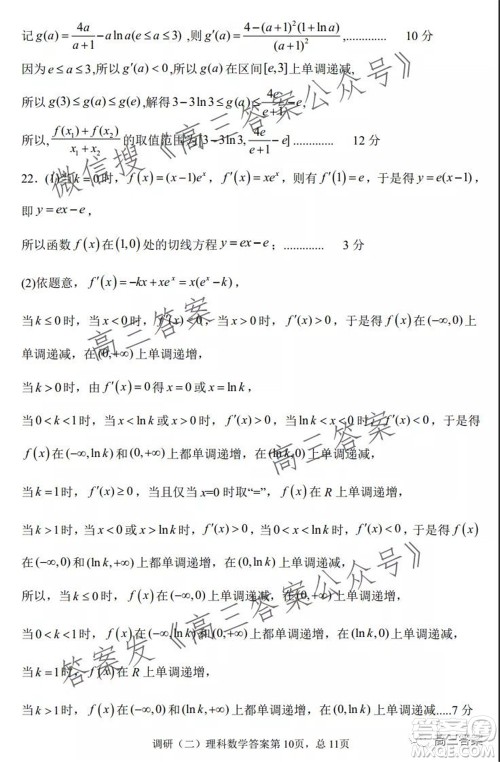 记 g(a) = 4a/(a+1) − a ln a (e ≤ a ≤ 3) ,则 g′(a) = (4−(a+1)²(1+ln a))/(a+1)² ,............. 10 分
因为 e ≤ a ≤ 3,所以 g′(a) < 0,所以 g(a) 在区间[e,3]上单调递减,
所以 g(3) ≤ g(a) ≤ g(e),解得 3−3ln3 ≤ g(a) ≤ 4e/(e+1) − e,
所以, (f(x₁)+f(x₂))/(x₁+x₂) 的取值范围为[3−3ln3, 4e/(e+1) − e] ............. 12 分
22．(1)当k = 0时，f(x) = (x−1)eˣ，f′(x) = xeˣ，则有 f′(1) = e，于是得 y = e(x−1)，
即 y = ex−e，
所以函数 f(x)在(1,0)处的切线方程 y = ex−e；............. 3 分
(2)依题意，f′(x) = −kx + xeˣ = x(eˣ − k)，
当 k ≤ 0 时，当 x < 0 时，f′(x) < 0，当 x > 0 时，f′(x) > 0，于是得 f(x)在(−∞,0)上
单调递减，在(0,+∞)上单调递增，
当 k > 0 时，由 f′(x) = 0 得 x = 0 或 x = ln k，
当 0 < k < 1 时，当 x < ln k 或 x > 0 时，f′(x) > 0，当 ln k < x < 0 时，f′(x) < 0，于是得
f(x)在(−∞,ln k)和(0,+∞)上都单调递增，在(ln k,0)上单调递减，
当 k = 1 时，f′(x) ≥ 0，当且仅当 x=0 时取“=”，f(x)在 R 上单调递增，
当 k > 1 时，当 x < 0 或 x > ln k 时，f′(x) > 0，当 0 < x < ln k 时，f′(x) < 0，于是得 f(x)
在(−∞,0)和(ln k,+∞)上都单调递增，在(0,ln k)上单调递减，
所以，当 k ≤ 0 时，f(x)在(−∞,0)上单调递减，在(0,+∞)上单调递增，
当 0 < k < 1 时，f(x)在(−∞,ln k)和(0,+∞)上都单调递增，在(ln k,0)上单调递减，
当 k = 1 时，f(x)在 R 上单调递增，
当 k > 1 时，f(x)在(−∞,0)和(ln k,+∞)上都单调递增，在(0,ln k)上单调递减.....7 分
调研（二）理科数学答案第 10页，总 11页
微信搜《高三答案公众号》
高三答案
高三答案
答案发《高三答案公众号》
高三答案